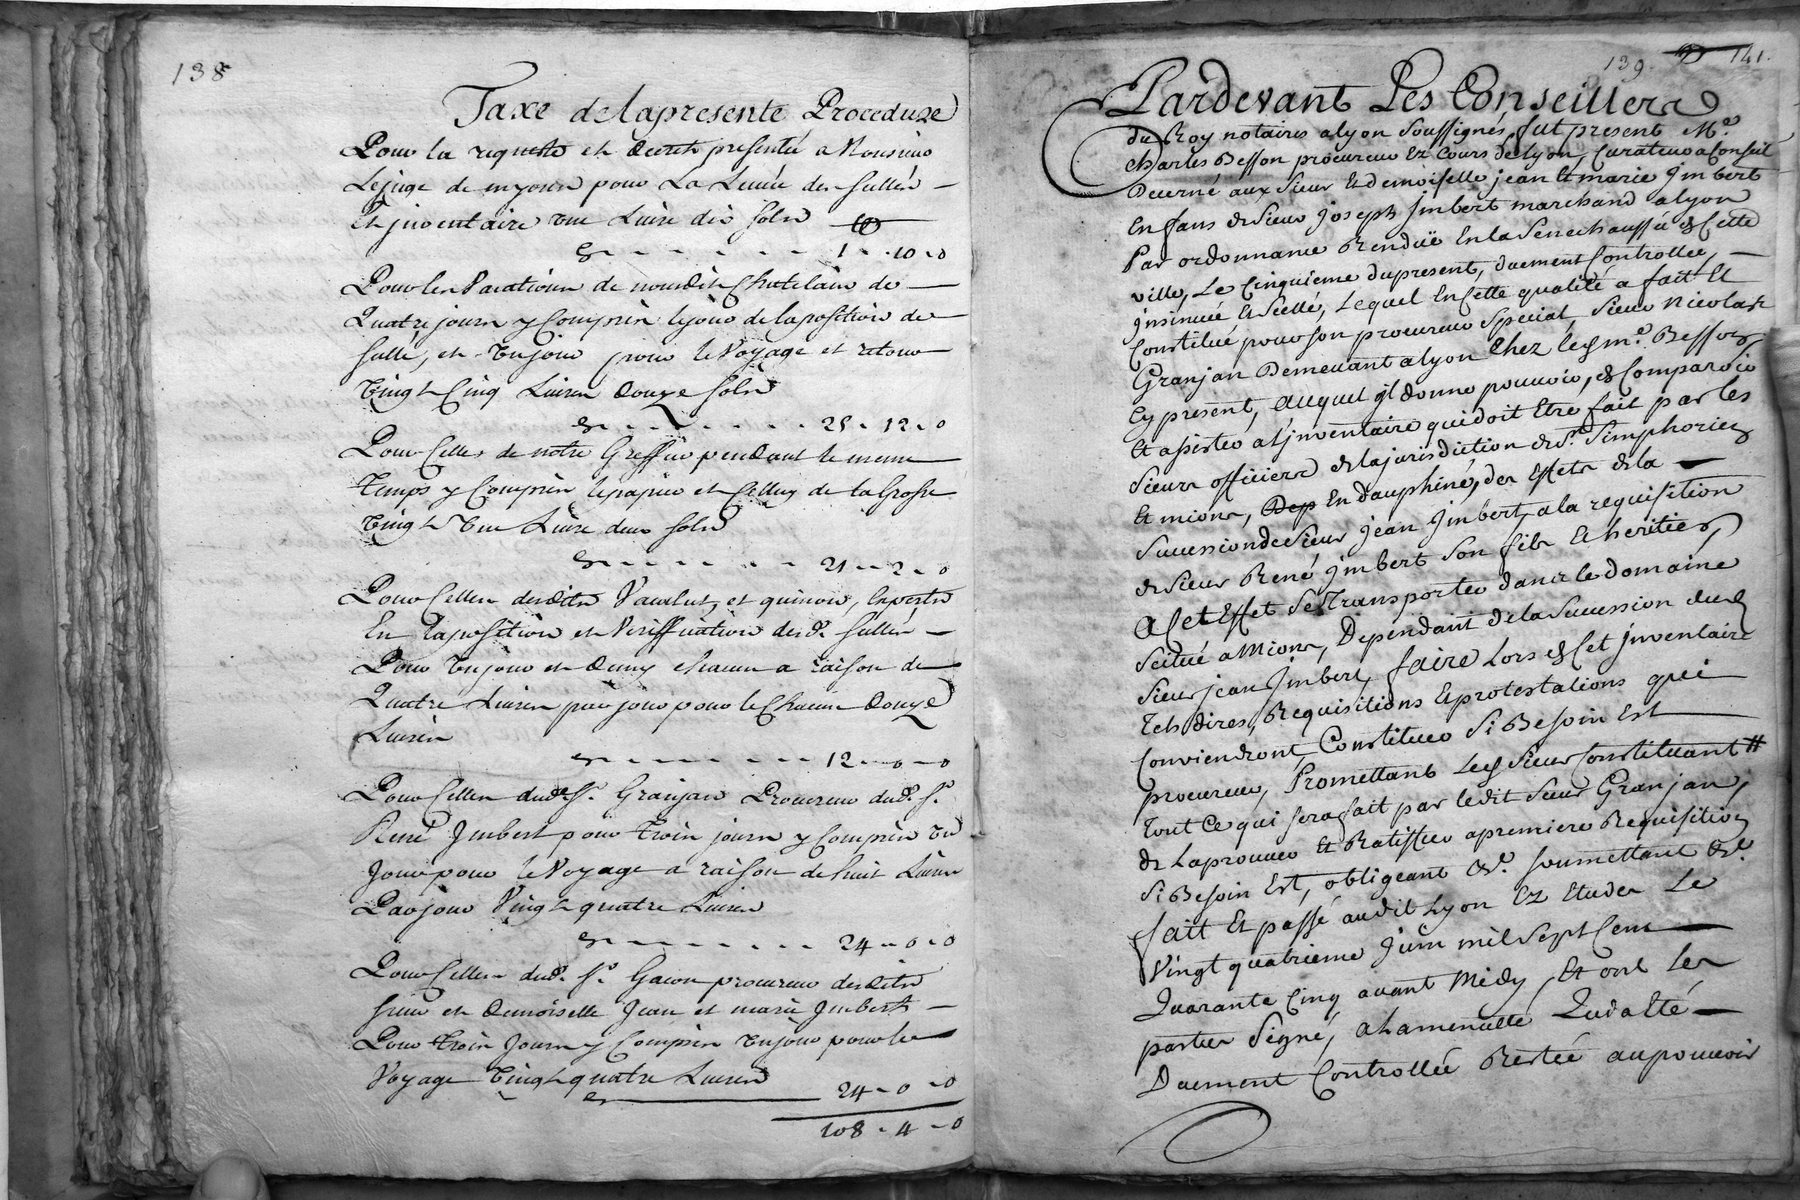 138
Taxe de lapresente Procedure
Pour la requeste et decret presenté a Monsieur
Lejuge de myons pour La Levée des sellés
Et jnventaire une Livre dix sols
1 - 10 - 0
Pour les Vacations de nousdit Chatelain de
Quatre jours y Compris lejour de laposition de
sellé, et un jour pour le Voyage et retour
Vingt Cinq Livres douze sols
25 - 12 - 0
Pour Celles de notre Greffier pendant le meme
Temps y Compris lepapier et Celluy de la Grosse
Vingt Une Livre deux sols
21 - 2 - 0
Pour Celles desdits et quinon, Experts
En laposition et Veriffication desd. sellés
Pour un jour et demy chacun a raison de
Quatre Livres par jour pour le Chacun douze
Livres
12 - 0 - 0
Pour Celles dud. Sr. Granjan Procureur dud. Sr.
René Jmbert pour trois jours y Compris un
Jour pour le Voyage a raison de huit Livres
Par jour Vingt quatre Livres
24 - 0 - 0
Pour Celles dud. Sr. Gacon procureur desdits
sieur et demoiselle Jean et marie Jmbert
Pour trois Jours y Compris un jour pour le
Voyage Vingt quatre Livres
24 - 0 - 0
108 - 4 - 0
139. 141.
Pardevant Les Conseillers
du Roy notaires alyon soussignés, fut present Me.
charles Besson procureur Ez Cours de Lyon, Curateur a Conseil
Decerné aux sieur Et demoiselle jean Et marie Jmbert
Enfans de sieur joseph Jmbert marchand alyon
Par ordonnance Renduë En la Senechaussée de Cette
ville, Le Cinquieme dupresent, duement Controllée,
jnsinuée Et sellé, Lequel En Cette qualité a fait Et
Constitué pour son procureur special sieur Nicolas
Granjan Demeurant alyon Chez ledt. me. Besson
Cy present, auquel jl donne pouvoir, de Comparoir
Et assister a l'jnventaire qui doit Etre fait par les
sieurs officiers de la jurisdiction de St. Simphorien
Et mions, Dep En dauphiné, des Effets de la
succession de sieur jean Jmbert, a la requisition
de sieur René Jmbert son fils Et heritier,
a Cet Effet se Transporter dans le domaine
scitué a Mions, Dependant de la succession dud.
sieur jean Jmbert, faire Lors de Cet jnventaire
Tels dires, Requisitions Et protestations qui
Conviendront, Constituer si Besoin Est
procureur, Promettant Led. sieur Constituant
tout Ce qui sera fait par ledit sieur Granjan,
de Laprouver Et Ratiffier a premiere Requisition
si Besoin Est, obligeant &c. soumettant &c.
fait Et passé audit Lyon Ez Etudes Le
Vingt quatrieme juin mil sept Cent
Quarante Cinq avant Midy, Et ont les
parties signé, a la menutte
Duement Controllée Restée au pouvoir